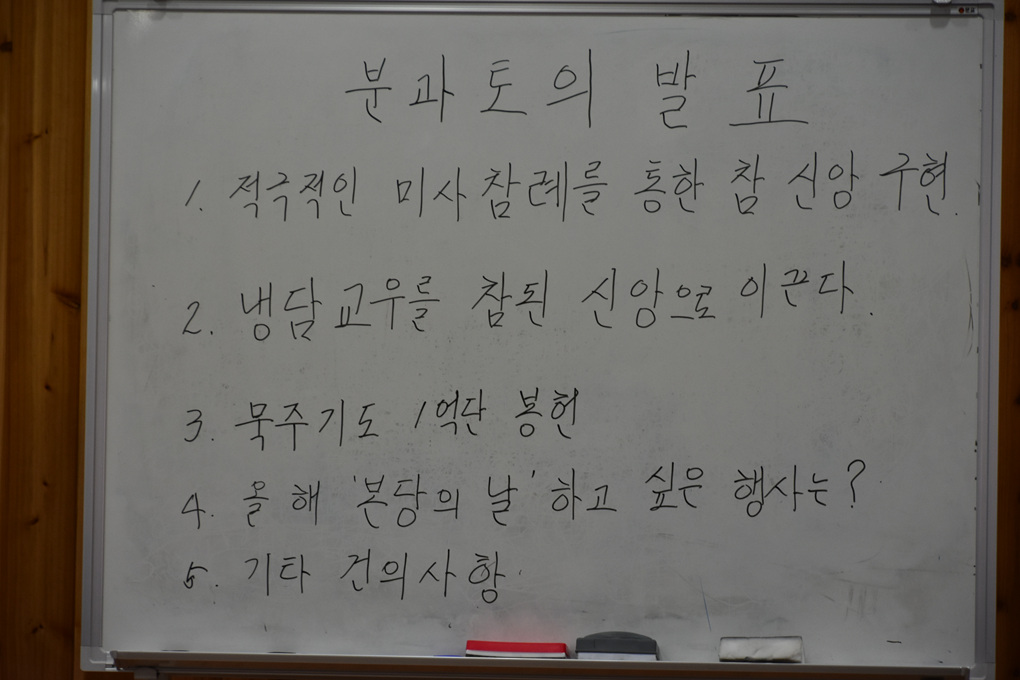 분과토의 발표
1. 적극적인 미사참례를 통한 참 신앙 구현.
2. 냉담교우를 참된 신앙으로 이끈다.
3. 묵주기도 1억단 봉헌
4. 올해 '본당의 날' 하고 싶은 행사는?
5. 기타 건의사항